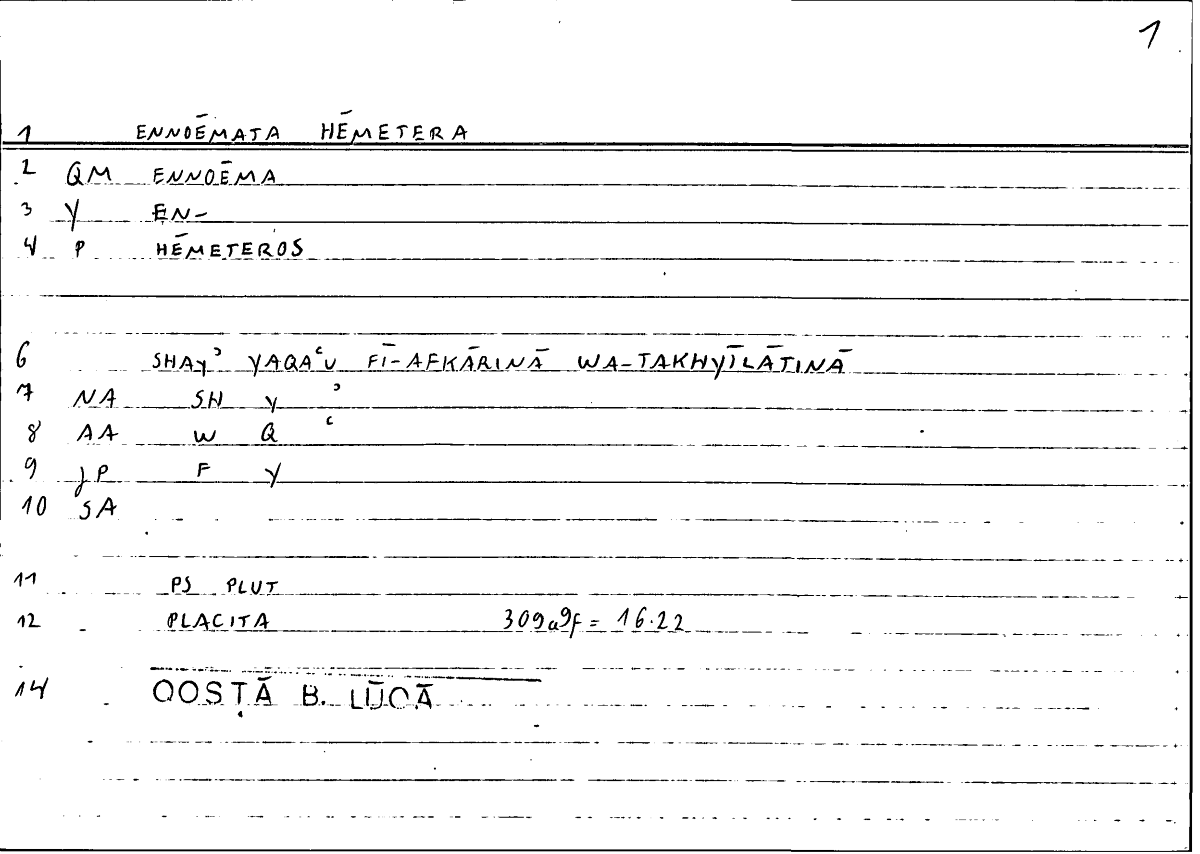 1
1 ENNOĒMATA HĒMETERA
2 QM ENNOĒMA
3 Y EN-
4 P HĒMETEROS
6 SHAYʾ YAQAʿU FĪ-AFKĀRINĀ WA-TAKHYĪLĀTINĀ
7 NA SH Y ʾ
8 AA W Q ʿ
9 JP F Y
10 SA
11 PS PLUT
12 PLACITA 309a9f = 16.22
14 QOSṬĀ B. LŪQĀ